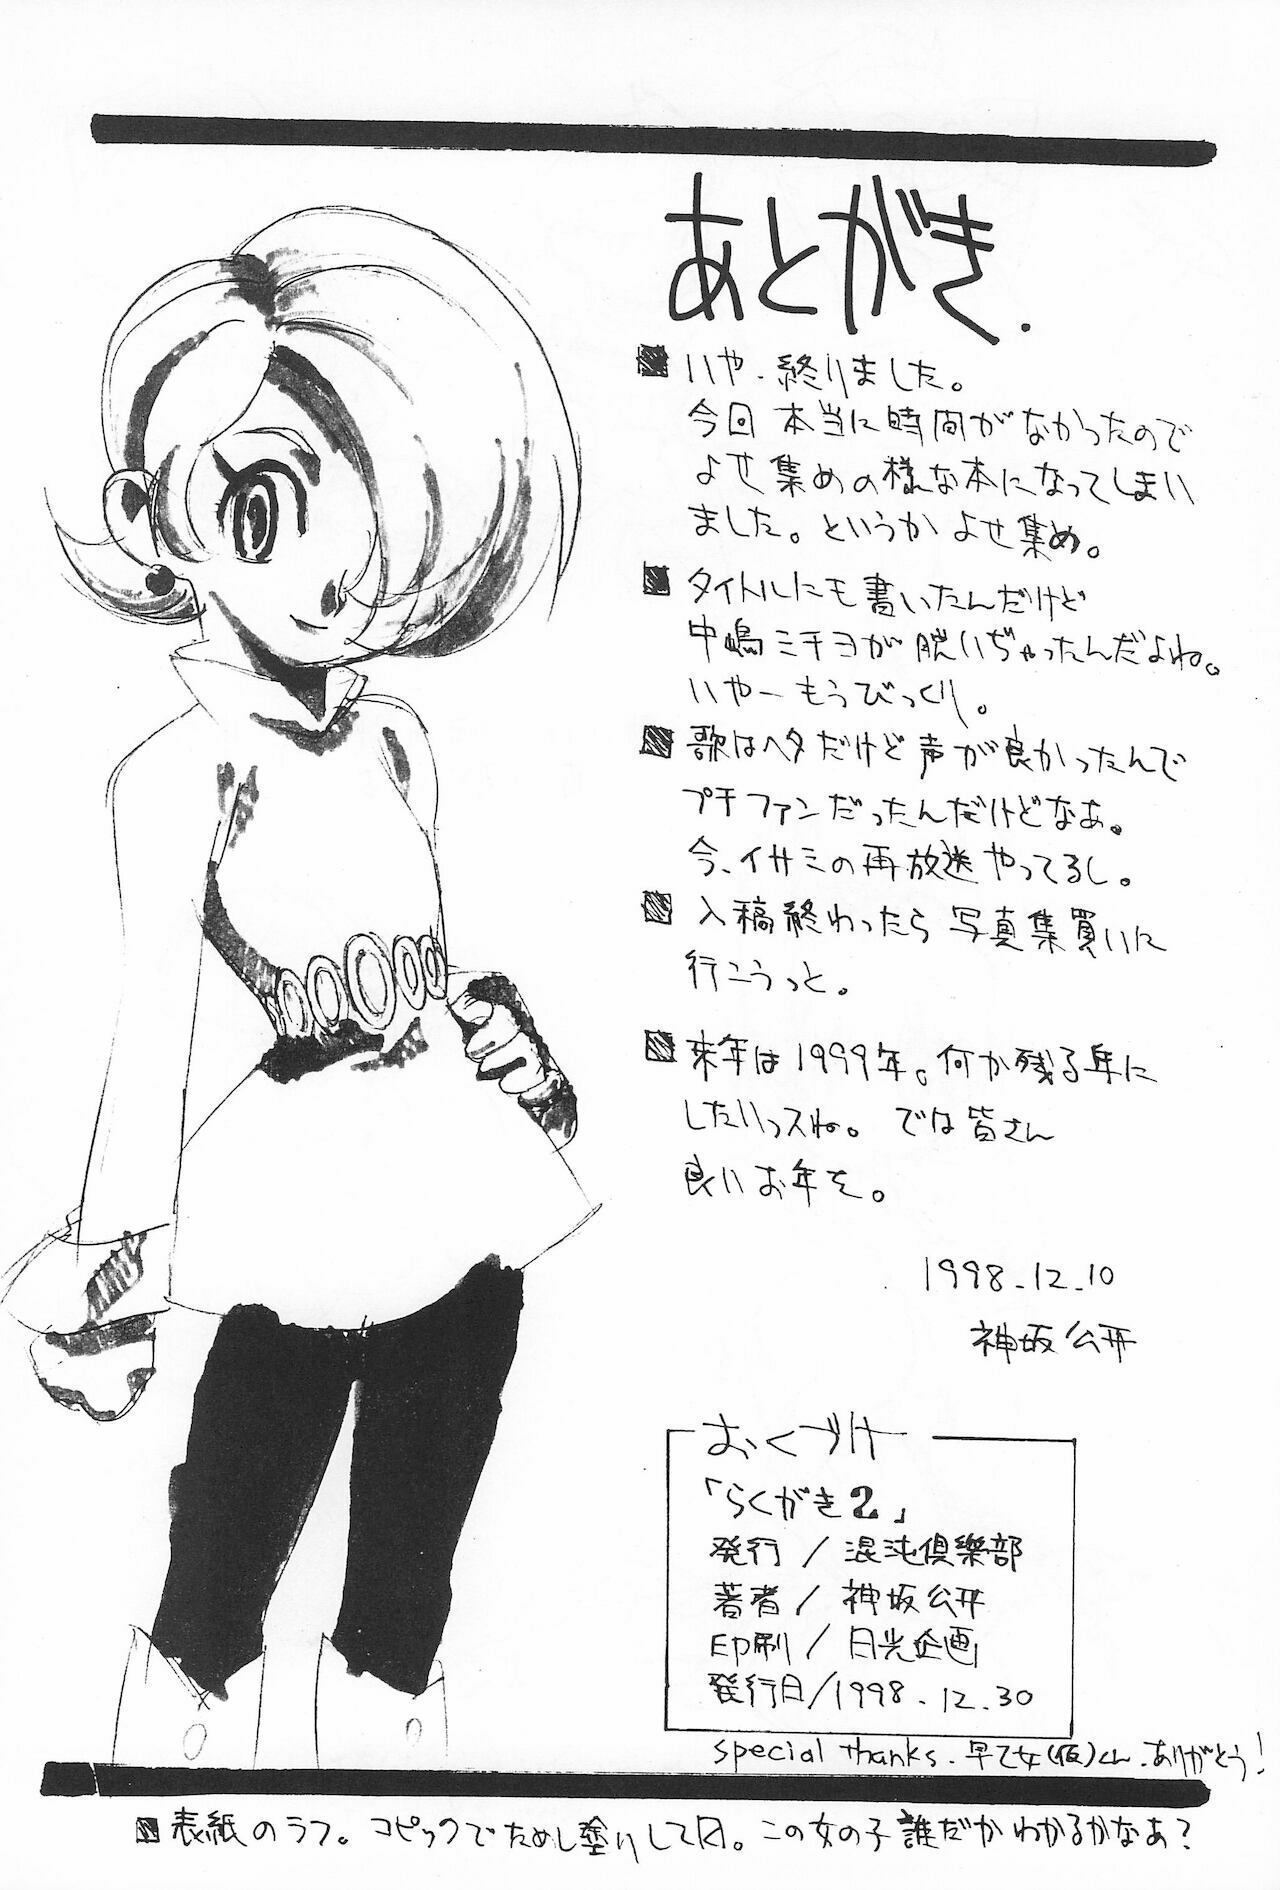 あとがき.
いや、終りました。
今回 本当に時間がなかったので
よせ集めの様な本になってしまい
ました。というか よせ集め。
タイトルにも書いたんだけど
中嶋ミチヨが脱いぢゃったんだよね。
いやーもうびっくり。
歌はヘタだけど声が良かったんで
プチファンだったんだけどなあ。
今、イサミの再放送やってるし。
入稿終わったら写真集買いに
行こうっと。
来年は1999年。何か残る年に
したいっスね。では皆さん
良いお年を。
1998.12.10
神坂公平
おくづけ
「らくがき2」
発行/混沌倶樂部
著者/神坂公平
印刷/日光企画
発行日/1998.12.30
special thanks.早乙女(仮)くん.ありがとう!
表紙のラフ。コピックでためし塗りして図。この女の子誰だかわかるかなあ?